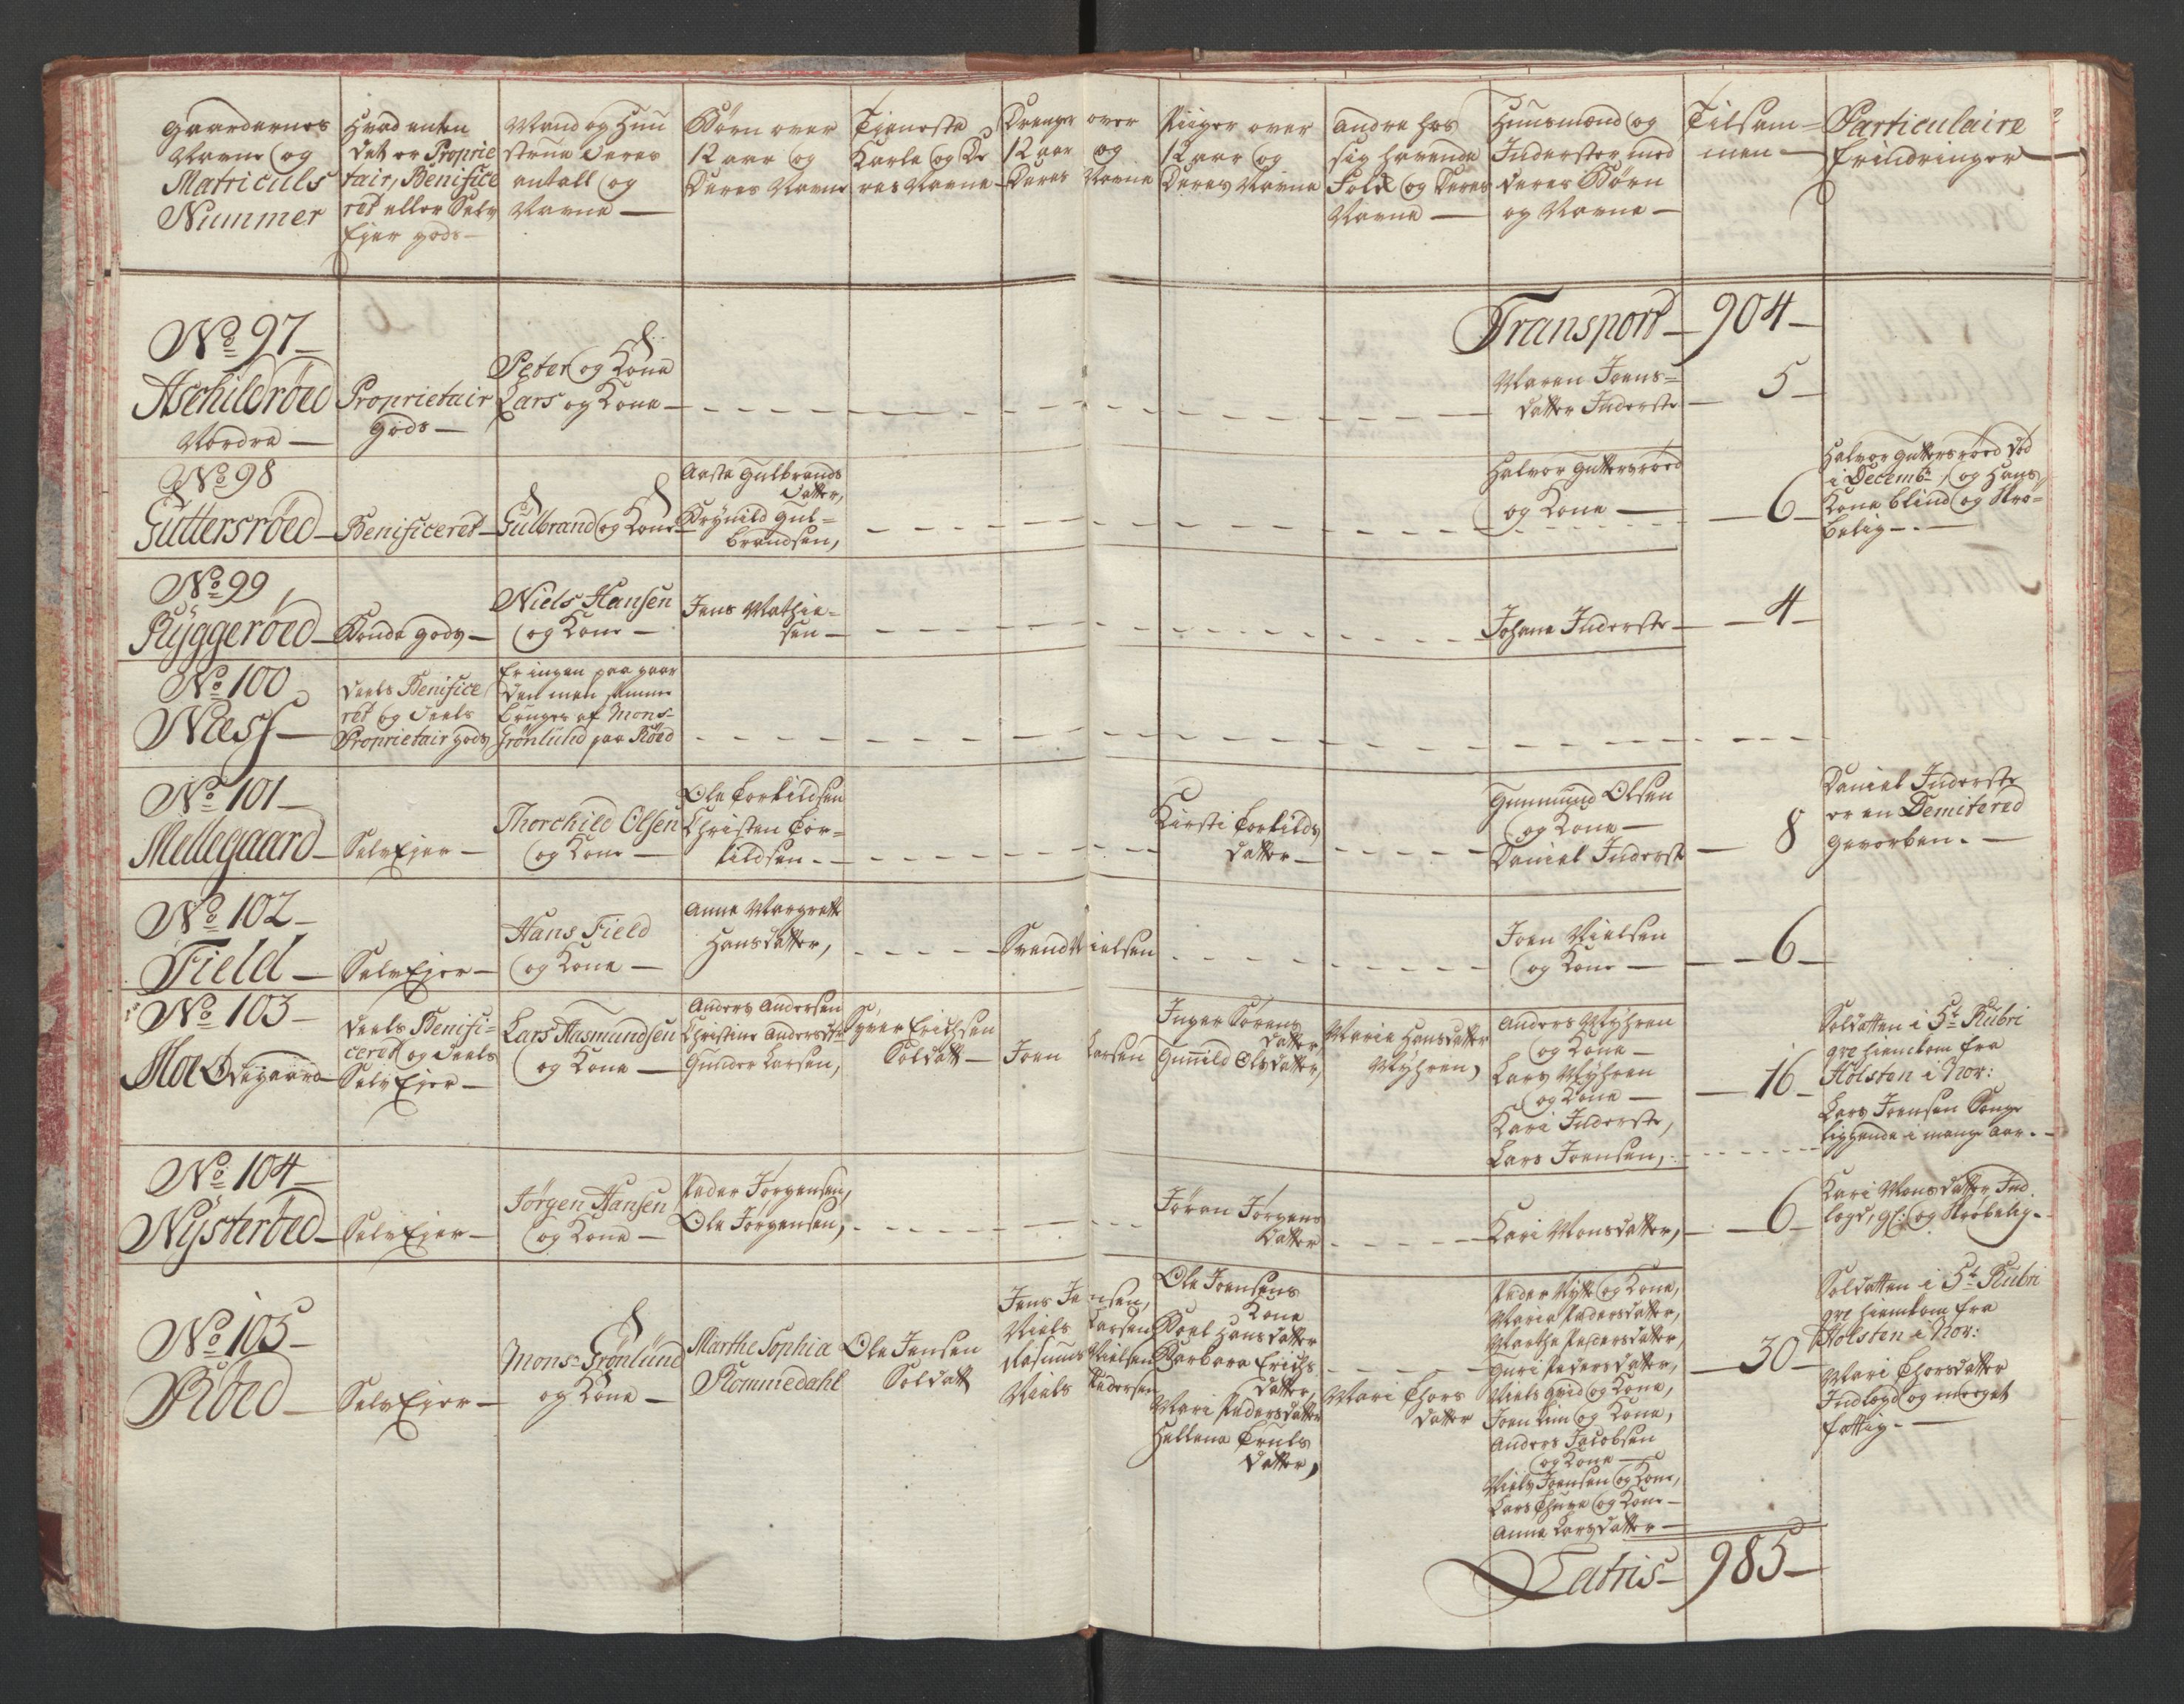 Gaardernes
Navne og
Matriculs
Nummer
Hvad enten
det er Proprie
tair, Benifice
ret eller Selv
Ejer gods
Mand og Huu
struer Deres
antall og
Navne
Børn over
12 aar og
Deres Navne
Tieneste
Karle og De
res Navne
Drenge over
12 aar og
Deres Navne
Piiger over
12 aar og
Deres Navne
Andre hos
sig havende
Folk og Deres
Navne
Huusmænd og
Inderster med
deres Børn
og Navne
Tilsam=
men
Particulaire
Erindringer
Transport 904
No 97
Aschildrøed
Nordre
Proprietair
Gods
Peter og Kone
Lars og Kone
Maren Joens=
datter Inderste
5
No 98
Guttersrøed
Benificeret
Gulbrand og Kone
Aaste Gulbrands
datter,
Brynild Gul=
brandsen,
Halvor Guttersrøed
og Kone
6
Halvor Guttersrøed død
i Decembr, og Hans
Kone blind og Skrø=
belig
No 99
Ryggerøed
Bonde gods
Niels Hansen
og Kone
Jens Mathie=
sen
Johane Inderste
4
No 100
Næss
Deels Benifice
ret og Deels
Proprietair gods
Er ingen paa gaar
den men samme
bruges af Mons=
Grønlund paa Røed
No 101
Mellegaard
SelvEjer
Thorchild Olsen
og Kone
Ole Torkildsen
Christen Tor=
kildsen
Kirsti Torkilds
datter
Gunmund Olsen
og Kone
Daniel Inderst
8
Daniel Inderste
er en Demitered
Gevorben.
No 102
Field
SelvEjer
Hans Field
og Kone
Anne Margrette
Hansdatter,
Svend Nielsen
Joen Nielsen
og Kone
6
No 103
Moe Ødegaard
Deels Benifi=
ceret og Deels
SelvEjer
Lars Aasmundsen
og Kone
Anders Andersen
Christine Andersdtr
Gunder Larsen,
Syver Erichsen
Soldatt
Joen Larsen
Inger Sørens
datter,
Gunild Olsdatter,
Marie Hansdatter
Myhren,
Anders Myhren
og Kone
Lars Myhren
og Kone
Kari Inderste,
Lars Joensen,
16
Soldatten i 5te Rubri
qve hiemkom fra
Holsten i Nov:
Lars Joensen Senge
liggende i mange Aar.
No 104
Nysterøed
SelvEjer
Jørgen Hansen
og Kone
Peder Jørgensen,
Ole Jørgensen,
Jøran Jørgens
datter
Kari Monsdatter,
6
Kari Monsdatter Ind
lagd, gl: og Skrøbelig.
No 105
Røed
SelvEjer
Mons= Grønlund
og Kone
Marthe Sophia
Blommedahl
Ole Jensen
Soldatt
Jens Jensen,
Niels Larsen
Rasmus Nielsen
Niels Pedersen
Ole Joensens
Kone
Karl Hansdatter
Barbara Erichs
datter,
Mari Pedersdatter
Hellena Truls
datter,
Mari Thors
datter
Peder Nytte og Kone,
Maria Pedersdatter,
Marthe Pedersdatter,
Guri Pedersdatter,
Niels Qvid og Kone,
Joen Lim og Kone,
Anders Jacobsen
og Kone
Niels Joensen og Kone,
Lars Thue og Kone
Anne Larsdatter
30
Soldatten i 5te Rubri
qve hiemkom fra
Holsten i Nov:
Mari Thorsdatter
Indlagd og meeget
fattig.
Latris 985